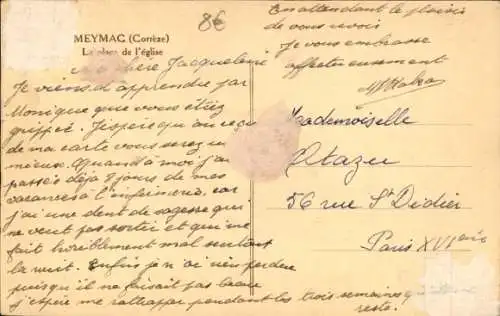 MEYMAC (Corrèze)
La place de l'église
8€
Ma chère Jacqueline
Je viens d'apprendre par
Monique que vous étiez
grippée. J'espère qu'au reçu
de ma carte vous serez
mieux. Quand à moi j'ai
passés déjà 8 jours de mes
vacances à l'infirmerie, car
j'ai une dent de sagesse qui
ne veut pas sortir et qui me
fait horriblement mal surtout
la nuit. Enfin je n'ai rien perdu
puisqu'il ne faisait pas beau
j'espère me rattraper pendant les trois semaines qui
reste!
En attendant le plaisir
de vous revoir
Je vous embrasse
affectueusement
Mademoiselle
Otazu
56 rue St Didier
Paris XVI